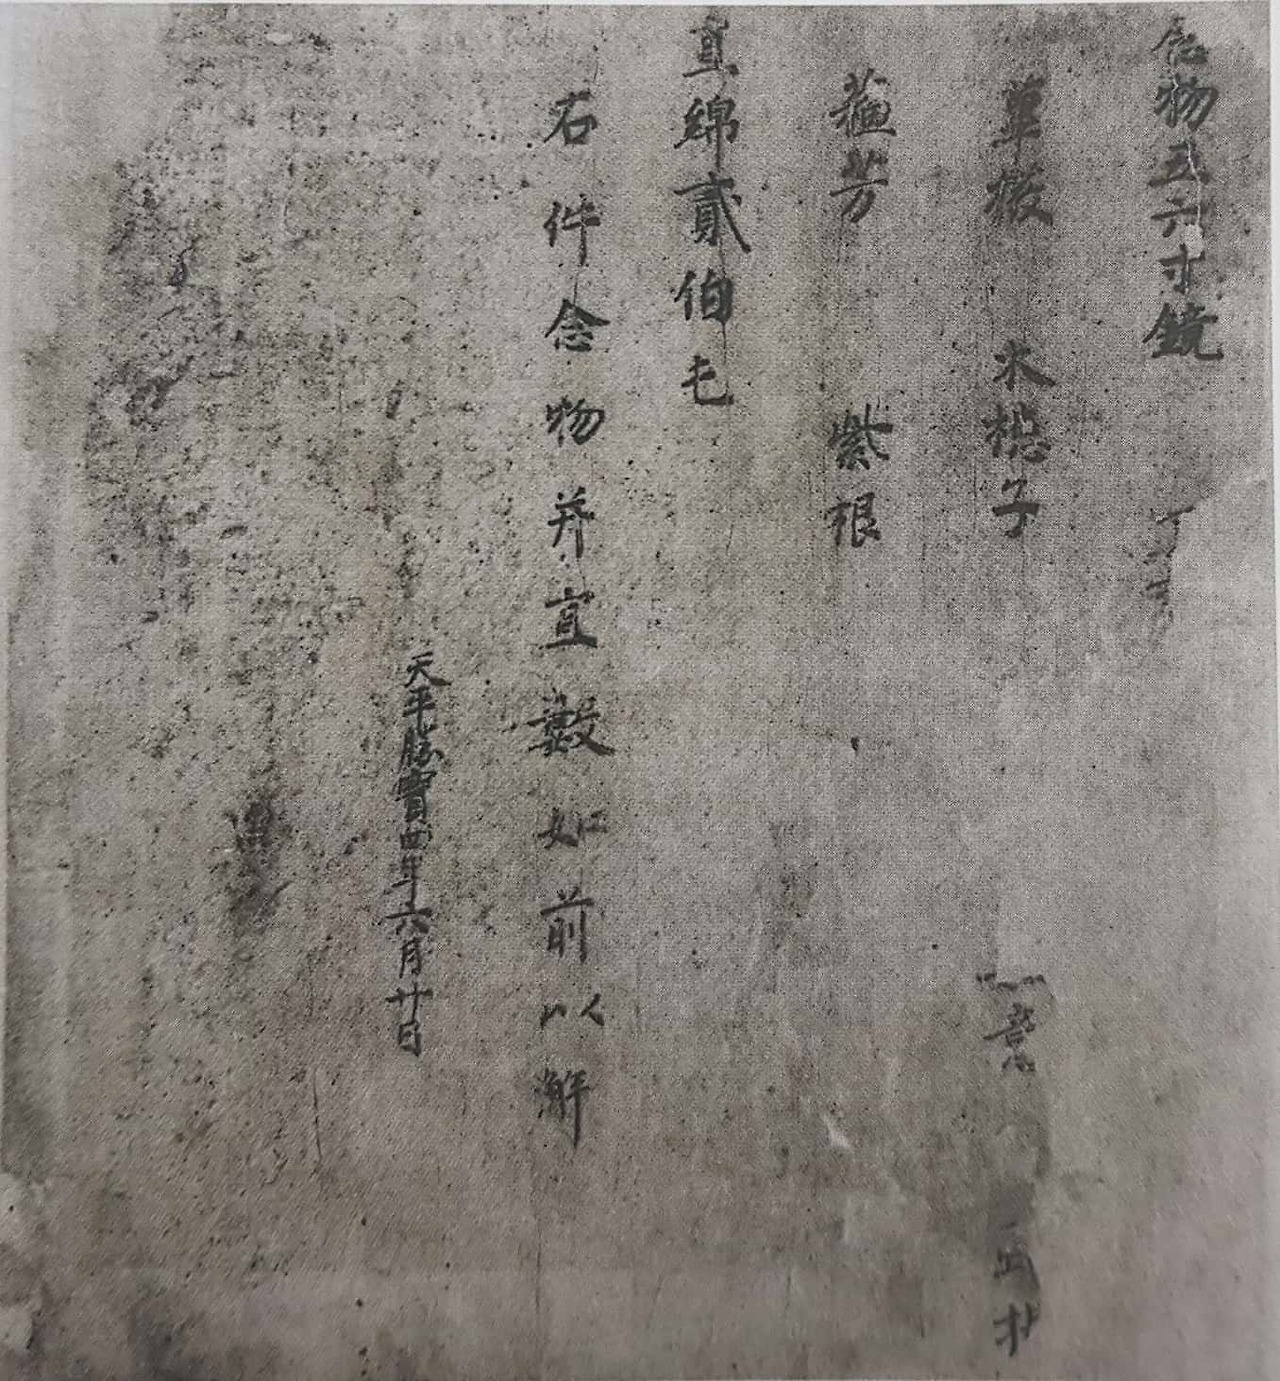 念物五六寸鏡
蓽撥 木槵子
蘓芳 紫根
直綿貳伯屯
右件念物并直數如前以解
天平勝寶四年六月廿日